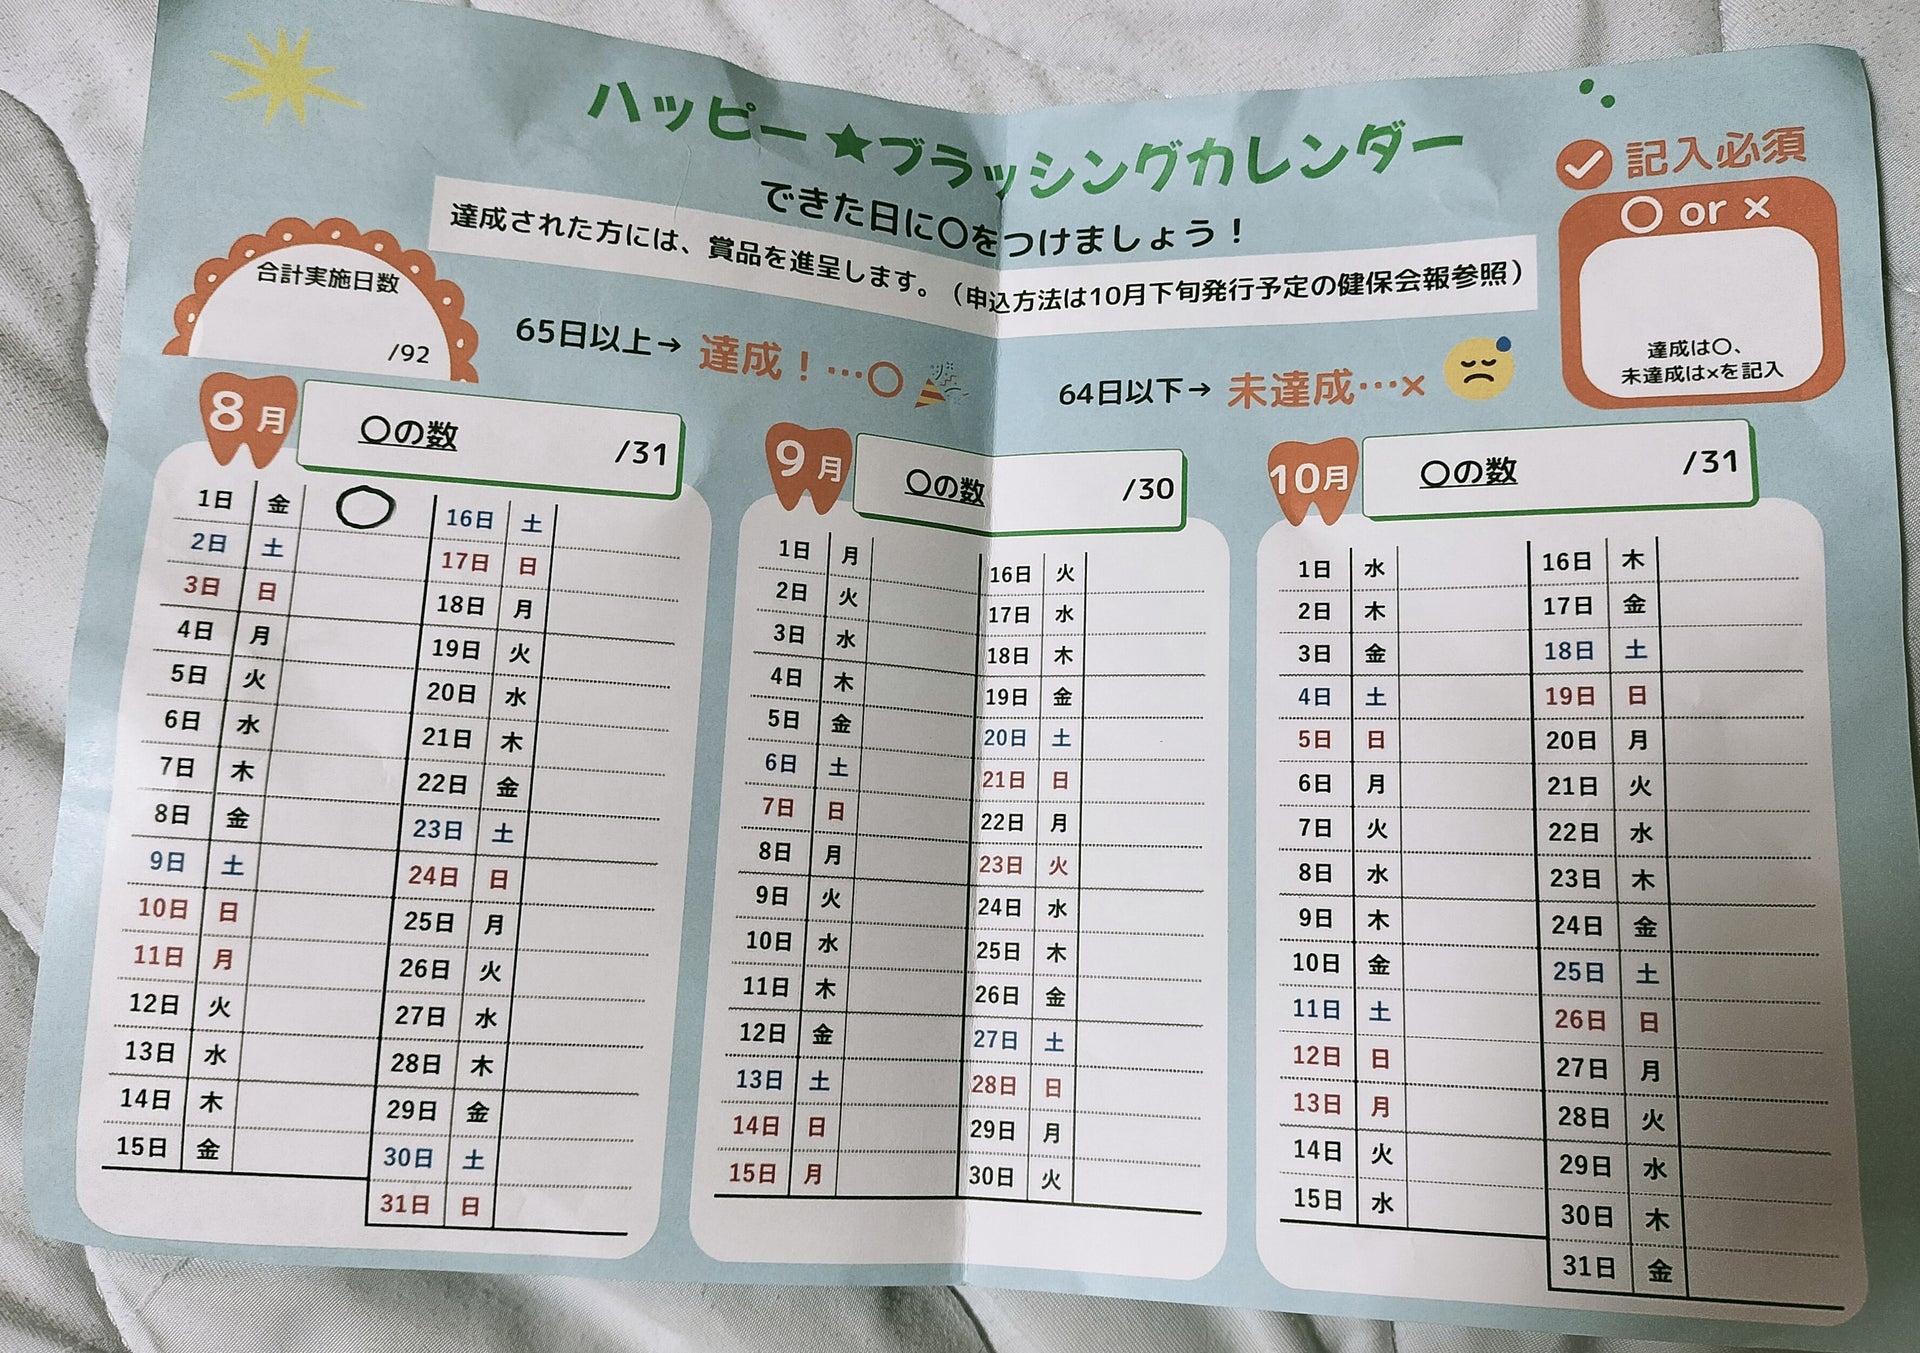 ハッピー★ブラッシングカレンダー
できた日に〇をつけましょう！
達成された方には、賞品を進呈します。（申込方法は10月下旬発行予定の健保会報参照）
記入必須
〇 or ×
達成は〇、
未達成は×を記入
合計実施日数
/92
65日以上→ 達成！…〇
64日以下→ 未達成…×
8月
〇の数 /31
1日 金 〇
2日 土
3日 日
4日 月
5日 火
6日 水
7日 木
8日 金
9日 土
10日 日
11日 月
12日 火
13日 水
14日 木
15日 金
16日 土
17日 日
18日 月
19日 火
20日 水
21日 木
22日 金
23日 土
24日 日
25日 月
26日 火
27日 水
28日 木
29日 金
30日 土
31日 日
9月
〇の数 /30
1日 月
2日 火
3日 水
4日 木
5日 金
6日 土
7日 日
8日 月
9日 火
10日 水
11日 木
12日 金
13日 土
14日 日
15日 月
16日 火
17日 水
18日 木
19日 金
20日 土
21日 日
22日 月
23日 火
24日 水
25日 木
26日 金
27日 土
28日 日
29日 月
30日 火
10月
〇の数 /31
1日 水
2日 木
3日 金
4日 土
5日 日
6日 月
7日 火
8日 水
9日 木
10日 金
11日 土
12日 日
13日 月
14日 火
15日 水
16日 木
17日 金
18日 土
19日 日
20日 月
21日 火
22日 水
23日 木
24日 金
25日 土
26日 日
27日 月
28日 火
29日 水
30日 木
31日 金